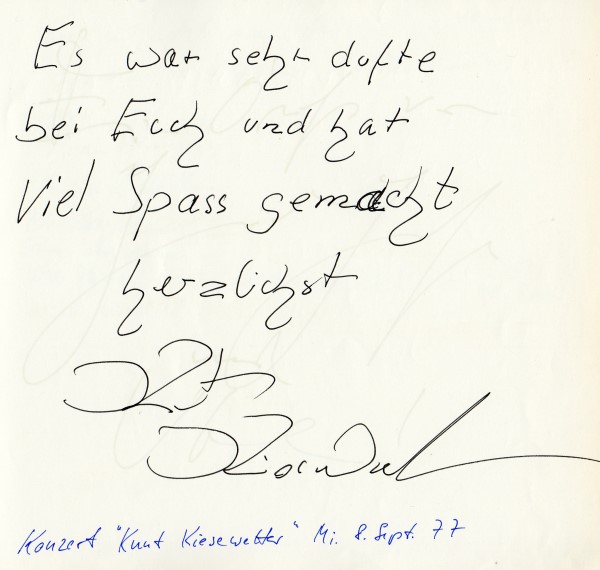 Es war sehr dufte
bei Euch und hat
Viel Spass gemacht
herzlichst
Konzert "Knut Kiesewetter" Mi. 8. Sept. 77